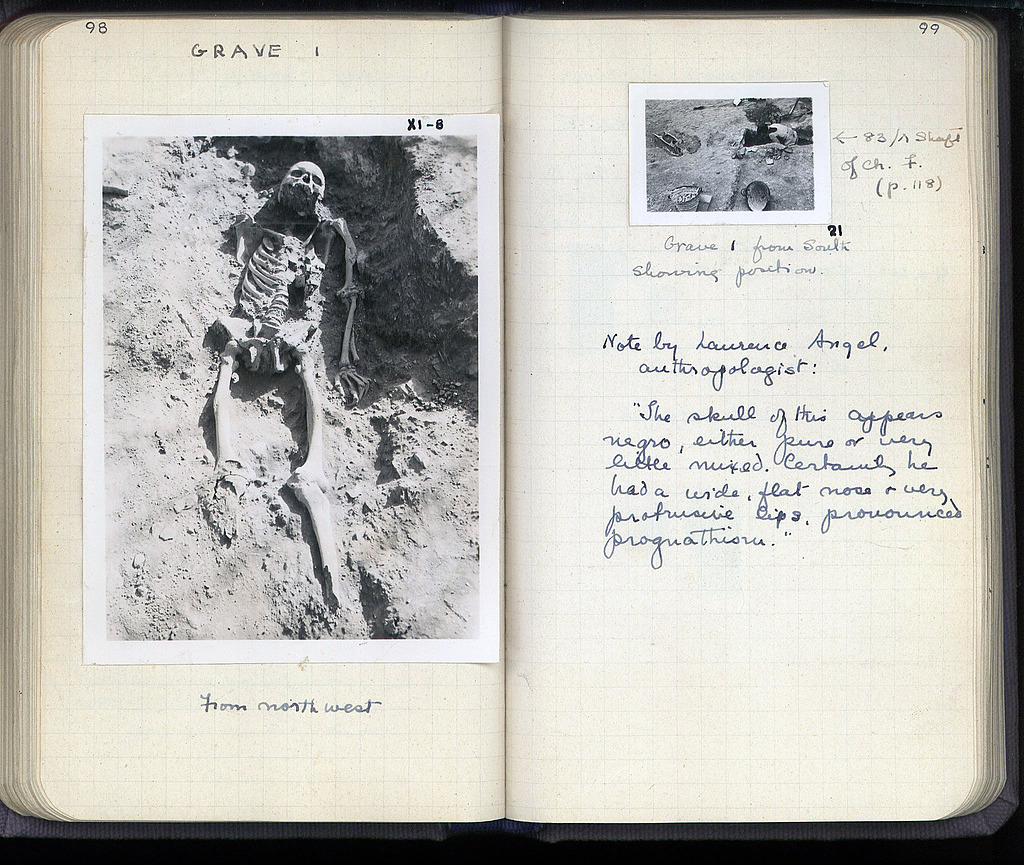 98
GRAVE 1
XI-8
From northwest
99
← 83/A Shaft
of Ch. F.
(p. 118)
21
Grave 1 from South
showing position.
Note by Laurence Angel,
anthropologist:
"The skull of this appears
negro, either pure or very
little mixed. Certainly he
had a wide, flat nose & very
protrusive lips, pronounced
prognathism."